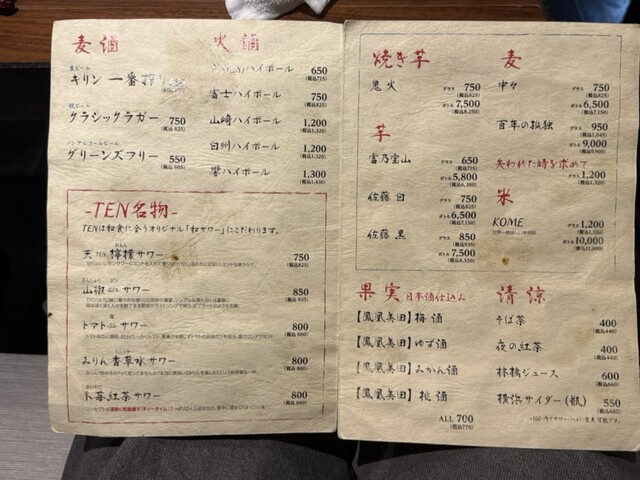 麦酒
生ビール
キリン 一番搾り
瓶ビール
クラシックラガー 750
(税込 825)
ノンアルコールビール
グリーンズフリー 550
(税込 605)
火酒
ハイボール 650
(税込715)
富士ハイボール 750
(税込825)
山崎ハイボール 1,200
(税込1,320)
白州ハイボール 1,200
(税込1,320)
響ハイボール 1,300
(税込1,430)
-TEN名物-
TENは和食に合うオリジナル「和サワー」にこだわります。
天 TEN 檸檬サワー 750
(税込825)
山椒 サワー 850
(税込 935)
トマト サワー 800
(税込 880)
みりん香草水サワー 800
(税込 880)
苺紅茶サワー 800
(税込 880)
焼き芋
鬼火 グラス 750
(税込825)
ボトル 7,500
(税込8,250)
芋
富乃宝山 グラス 650
(税込715)
ボトル 5,800
(税込6,380)
佐藤 白 グラス 750
(税込825)
ボトル 6,500
(税込7,150)
佐藤 黒 グラス 850
(税込935)
ボトル 7,500
(税込8,250)
麦
中々 グラス 750
(税込825)
ボトル 6,500
(税込7,150)
百年の孤独 グラス 950
(税込1,045)
ボトル 9,000
(税込9,900)
失われた時を求めて
グラス 1,200
(税込1,320)
米
KOME グラス 1,200
(税込1,320)
ボトル 10,000
(税込11,000)
果実 日本酒仕込み
【鳳凰美田】梅酒
【鳳凰美田】ゆず酒
【鳳凰美田】みかん酒
【鳳凰美田】桃酒
ALL 700
(税込770)
清涼
そば茶 400
(税込440)
夜の紅茶 400
(税込440)
林檎ジュース 600
(税込660)
横浜サイダー(瓶) 550
(税込605)
+100円でサワー・ハイに変更可能です。